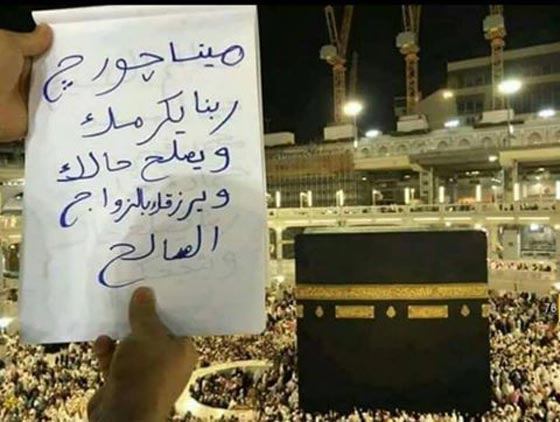 مينا چورچ
ربنا يكرمك
ويصلح حالك
ويرزقك بالزواج
الصالح